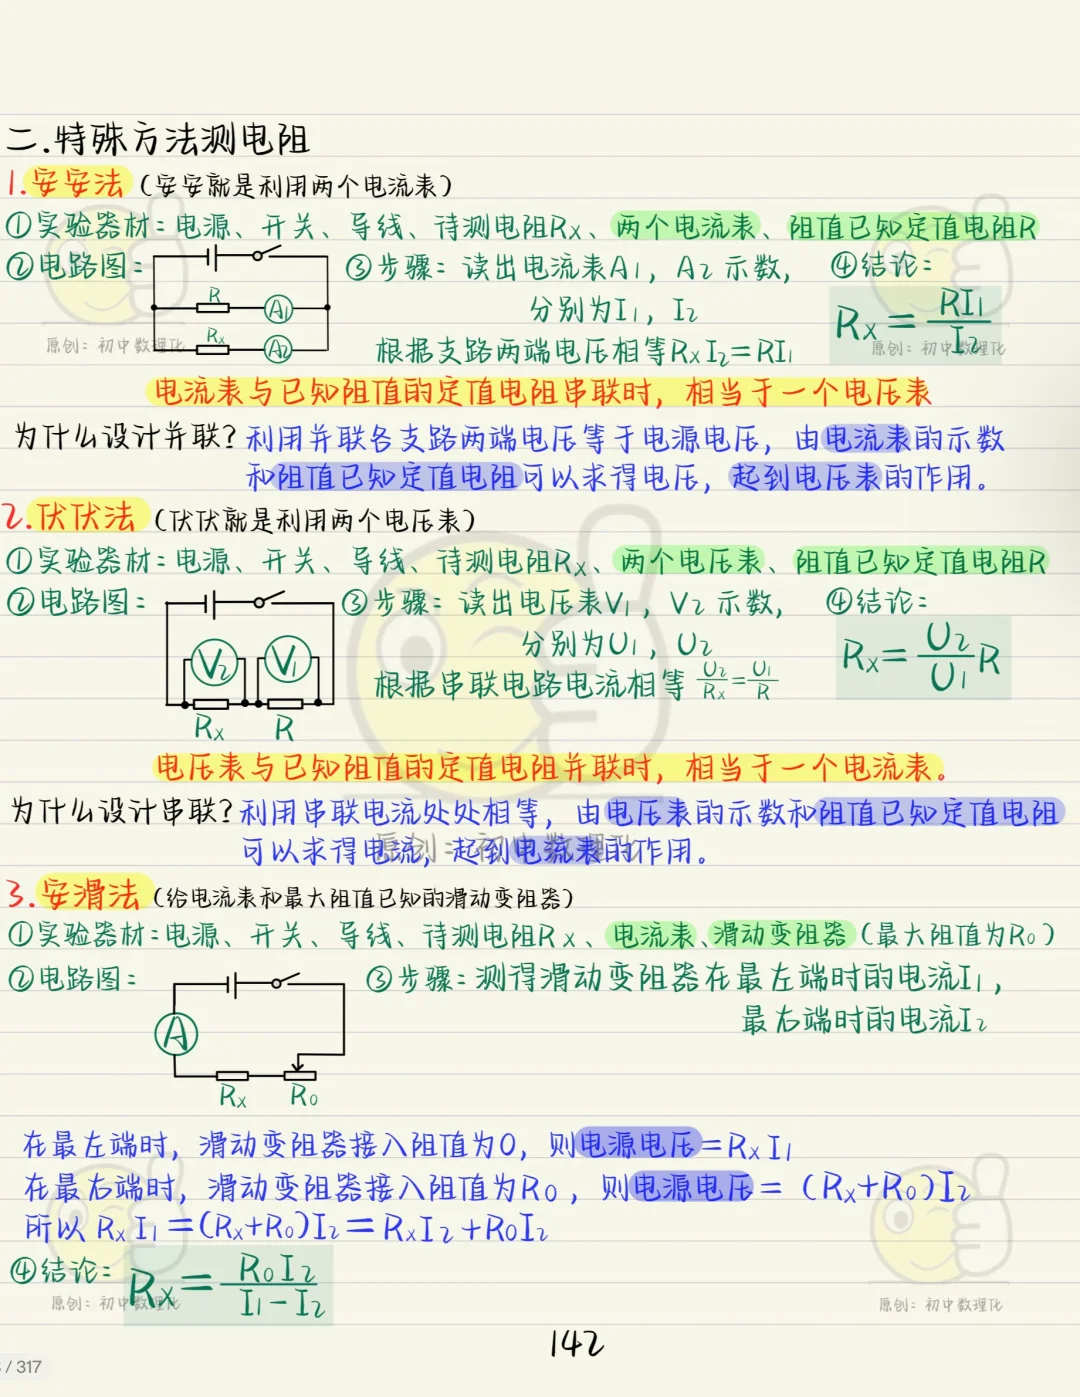 二.特殊方法测电阻
1.安安法(安安就是利用两个电流表)
①实验器材:电源、开关、导线、待测电阻Rx、两个电流表、阻值已知定值电阻R
②电路图:
R
A1
Rx
A2
③步骤:读出电流表A1,A2示数,
分别为I1,I2
根据支路两端电压相等RxI2=RI1
④结论:
Rx=RI1/I2
原创:初中数理化
原创:初中数理化
电流表与已知阻值的定值电阻串联时,相当于一个电压表
为什么设计并联?利用并联各支路两端电压等于电源电压,由电流表的示数
和阻值已知定值电阻可以求得电压,起到电压表的作用。
2.伏伏法(伏伏就是利用两个电压表)
①实验器材:电源、开关、导线、待测电阻Rx、两个电压表、阻值已知定值电阻R
②电路图:
V2
V1
Rx
R
③步骤:读出电压表V1,V2示数,
分别为U1,U2
根据串联电路电流相等 U2/Rx=U1/R
④结论:
Rx=U2/U1 R
电压表与已知阻值的定值电阻并联时,相当于一个电流表。
为什么设计串联?利用串联电流处处相等,由电压表的示数和阻值已知定值电阻
可以求得电流,起到电流表的作用。
原创:初中数理化
3.安滑法(给电流表和最大阻值已知的滑动变阻器)
①实验器材:电源、开关、导线、待测电阻Rx、电流表、滑动变阻器(最大阻值为R0)
②电路图:
A
Rx
R0
③步骤:测得滑动变阻器在最左端时的电流I1,
最右端时的电流I2
在最左端时,滑动变阻器接入阻值为0,则电源电压=RxI1
在最右端时,滑动变阻器接入阻值为R0,则电源电压=(Rx+R0)I2
所以RxI1=(Rx+R0)I2=RxI2+R0I2
④结论:Rx=R0I2/(I1-I2)
原创:初中数理化
原创:初中数理化
142
/ 317